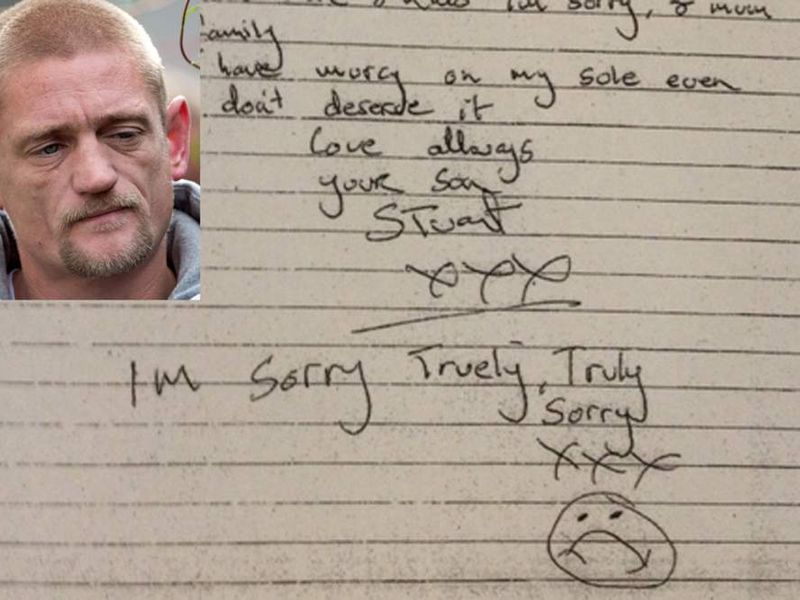 I'm sorry, & mum
family
have murcy on my sole even
don't deserve it
love allways
your son
STuart
xxx
I'm Sorry Truely, Truly
Sorry
xxx